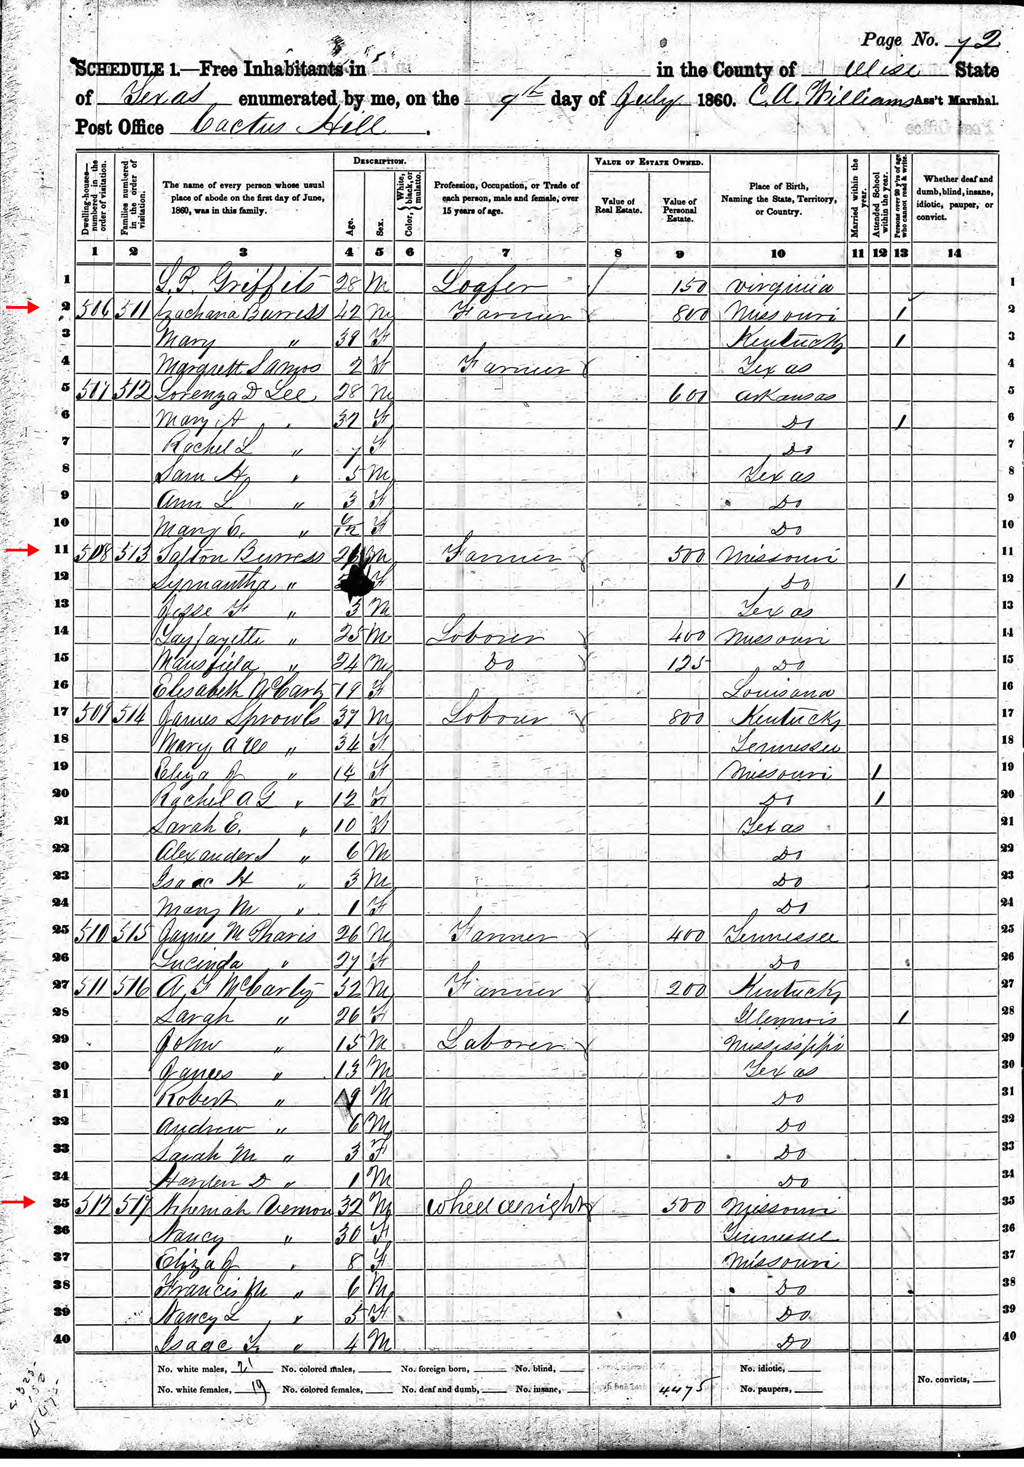 Page No. 72
SCHEDULE 1.—Free Inhabitants in in the County of Wise State
of Texas enumerated by me, on the 9th day of July 1860. C. A. Williams Ass't Marshal.
Post Office Cactus Hill.
DESCRIPTION. VALUE OF ESTATE OWNED.
Dwelling-houses—numbered in the order of visitation. Families numbered in the order of visitation. The name of every person whose usual place of abode on the first day of June, 1860, was in this family. Age. Sex. Color, White, black, or mulatto. Profession, Occupation, or Trade of each person, male and female, over 15 years of age. Value of Real Estate. Value of Personal Estate. Place of Birth, Naming the State, Territory, or Country. Married within the year. Attended School within the year. Persons over 20 y'rs of age who cannot read & write. Whether deaf and dumb, blind, insane, idiotic, pauper, or convict.
1 2 3 4 5 6 7 8 9 10 11 12 13 14
1 L. P. Griffits 28 M Loafer / 150 Virginia 1
2 506 511 Zachana Burress 42 M Farmer 800 Missouri 1 2
3 Mary " 39 F Kentucky 1 3
4 Margrett Samos 2 F Farmer Texas 4
5 507 512 Lorenza D Lee 28 M 601 Arkansas 5
6 Mary A " 37 F Do 1 6
7 Rachel L " 7 F Do 7
8 Sam H " 5 M Texas 8
9 Ann L " 3 F Do 9
10 Mary E. " F Do 10
11 508 513 Tafton Burress 26 M Farmer 500 Missouri 11
12 Symantha " F Do 1 12
13 Jesse F " 3 M Texas 13
14 Layfayette " 25 M Loborer 400 Missouri 14
15 Mansfield " 24 M Do 125 Do 15
16 Elisabeth McCarty 19 F Louisana 16
17 509 514 James Sprowls 37 M Lobour 800 Kentucky 17
18 Mary A " 34 F Tennessee 18
19 Eliza J " 14 F Missouri 1 19
20 Rachel A G " 12 F Do 1 20
21 Sarah E. " 10 F Texas 21
22 Alexander S " 6 M Do 22
23 Isaac H " 3 M Do 23
24 Mary M " 1 F Do 24
25 510 515 James M Pharis 26 M Farmer 400 Tennessee 25
26 Lucinda " 27 F Do 26
27 511 516 A. F McCarty 32 M Farmer 200 Kentucky 27
28 Sarah " 26 F Illennois 1 28
29 John " 15 M Laborer Mississippi 29
30 James " 13 M Texas 30
31 Robert " 9 M Do 31
32 Andrew " 6 M Do 32
33 Sarah M " 3 F Do 33
34 Harden D " 1 M Do 34
35 512 517 Nehemiah Vernon 32 M Wheel Wright 500 Missouri 35
36 Nancy " 30 F Tennessee 36
37 Eliza J " 8 F Missouri 37
38 Francis M " 6 M Do 38
39 Nancy L " 5 F Do 39
40 Isaac F " 4 M Do 40
No. white males, 21 No. colored males, No. foreign born, No. blind, No. idiotic,
No. white females, 19 No. colored females, No. deaf and dumb, No. insane, 4475 No. paupers, No. convicts,